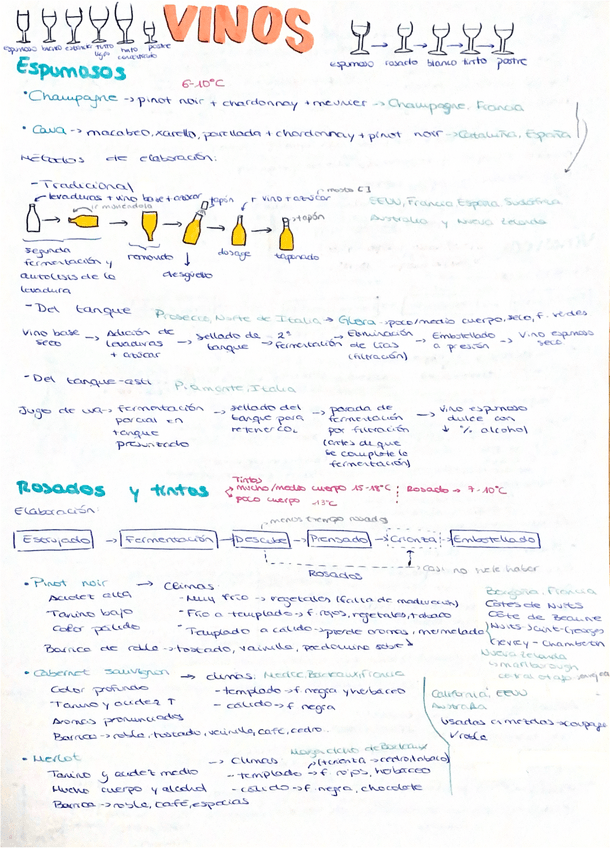 VINOS
espumoso blanco tinto postre
espumoso → rosado → blanco → tinto → postre
Espumosos
6-10°C
· Champagne → pinot noir + chardonnay + meunier → Champagne, Francia
· Cava → macabeo, xarello, parellada + chardonnay + pinot noir → Cataluña, España
Métodos de elaboración:
- Tradicional
levaduras + vino base + azúcar
tapón
vino + azúcar
EEUU, Francia España Sudáfrica
Australia y Nueva Zelanda
tapón
segunda fermentación y autolisis de la levadura
removido
degüello
dosage
taponado
- Del tanque Prosecco, Norte de Italia → Glera → poco/medio cuerpo, seco, f. verdes
Vino base seco → Adición de levaduras + azúcar → sellado de tanque → 2ª fermentación → Eliminación de lías (filtración) → Embotellado a presión → Vino espumoso seco
- Del tanque-asti Piamonte, Italia
Jugo de uva → fermentación parcial en tanque presurizado → sellado del tanque para retener CO₂ → parada de fermentación por filtración (antes de que se complete la fermentación) → Vino espumoso dulce con ↓ % alcohol
Rosados y tintos
Tintos
mucho/medio cuerpo 15-18°C
poco cuerpo 13°C
Rosado → 7-10°C
Elaboración:
menos tiempo rosados
Estrujado → Fermentación → Descube → Prensado → Crianza → Embotellado
Rosados
casi no suele haber
· Pinot noir → Climas
Acidez alta
- Muy frío → vegetales (falta de maduración)
Tanino bajo
- Frío a templado → f. rojos, vegetales, tabaco
Color pálido
- Templado a calido → pierde aromas, mermelado
Barrica de roble → tostado, vainilla, predomina sobre
Borgoña, Francia
Côtes de Nuits
Côte de Beaune
Nuits-Saint-Georges
Gevrey-Chambertin
Nueva Zelanda
Marlborough
central otago
· Cabernet sauvignon → climas: Medoc, Burdeos, Francia
Color profundo
- templado → f negra y herbáceo
Tanino y acidez ↑
- calido → f negra
Aromas pronunciados
Barrica → roble, tostado, vainilla, café, cedro..
California, EEUU
Australia
· Merlot → Climas
Tanino y acidez medio
- templado → f rojos, herbáceo
Mucho cuerpo y alcohol
- cálido → f negra, chocolate
Barrica → roble, café, especias